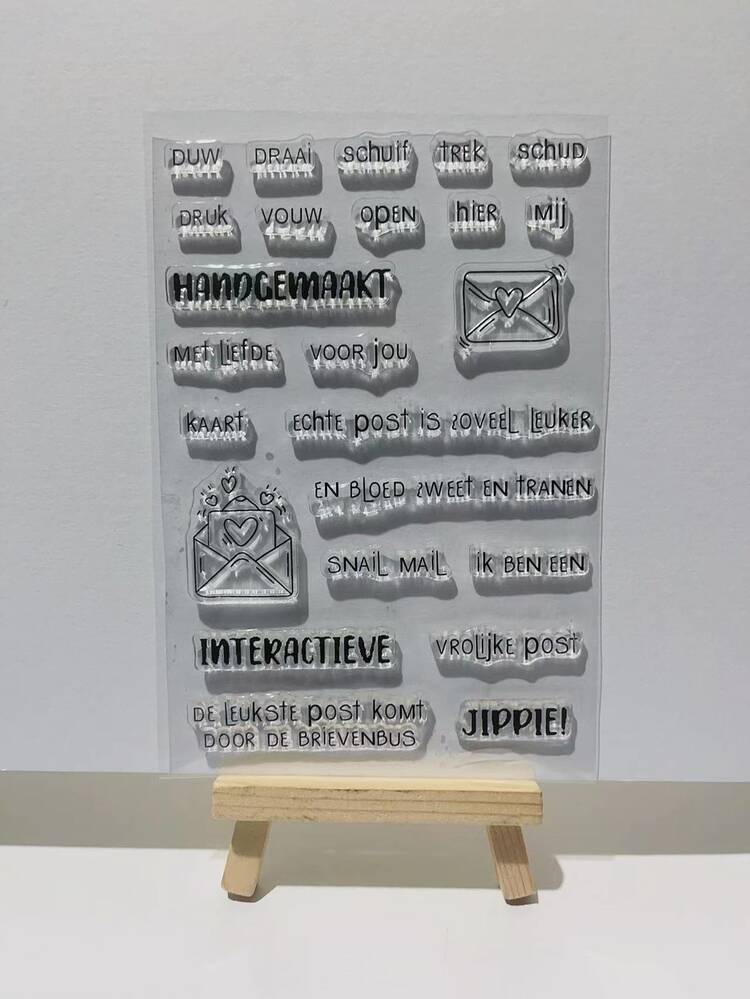 DUW DRAAi schuif tREK schUD
DRUK VOUW OPEN hiER Mij
HANDGEMAAKT
MET LiEfDE VOOR jOU
KAART ECHtE POST iS ZOVEEL LEUKER
EN BLOED ZWEET EN tRANEN
SNAiL MAiL iK BEN EEN
INTERACTIEVE VROLijKE POST
DE LEUKSTE POST KOMT
DOOR DE BRiEVENBUS
JIPPIE!